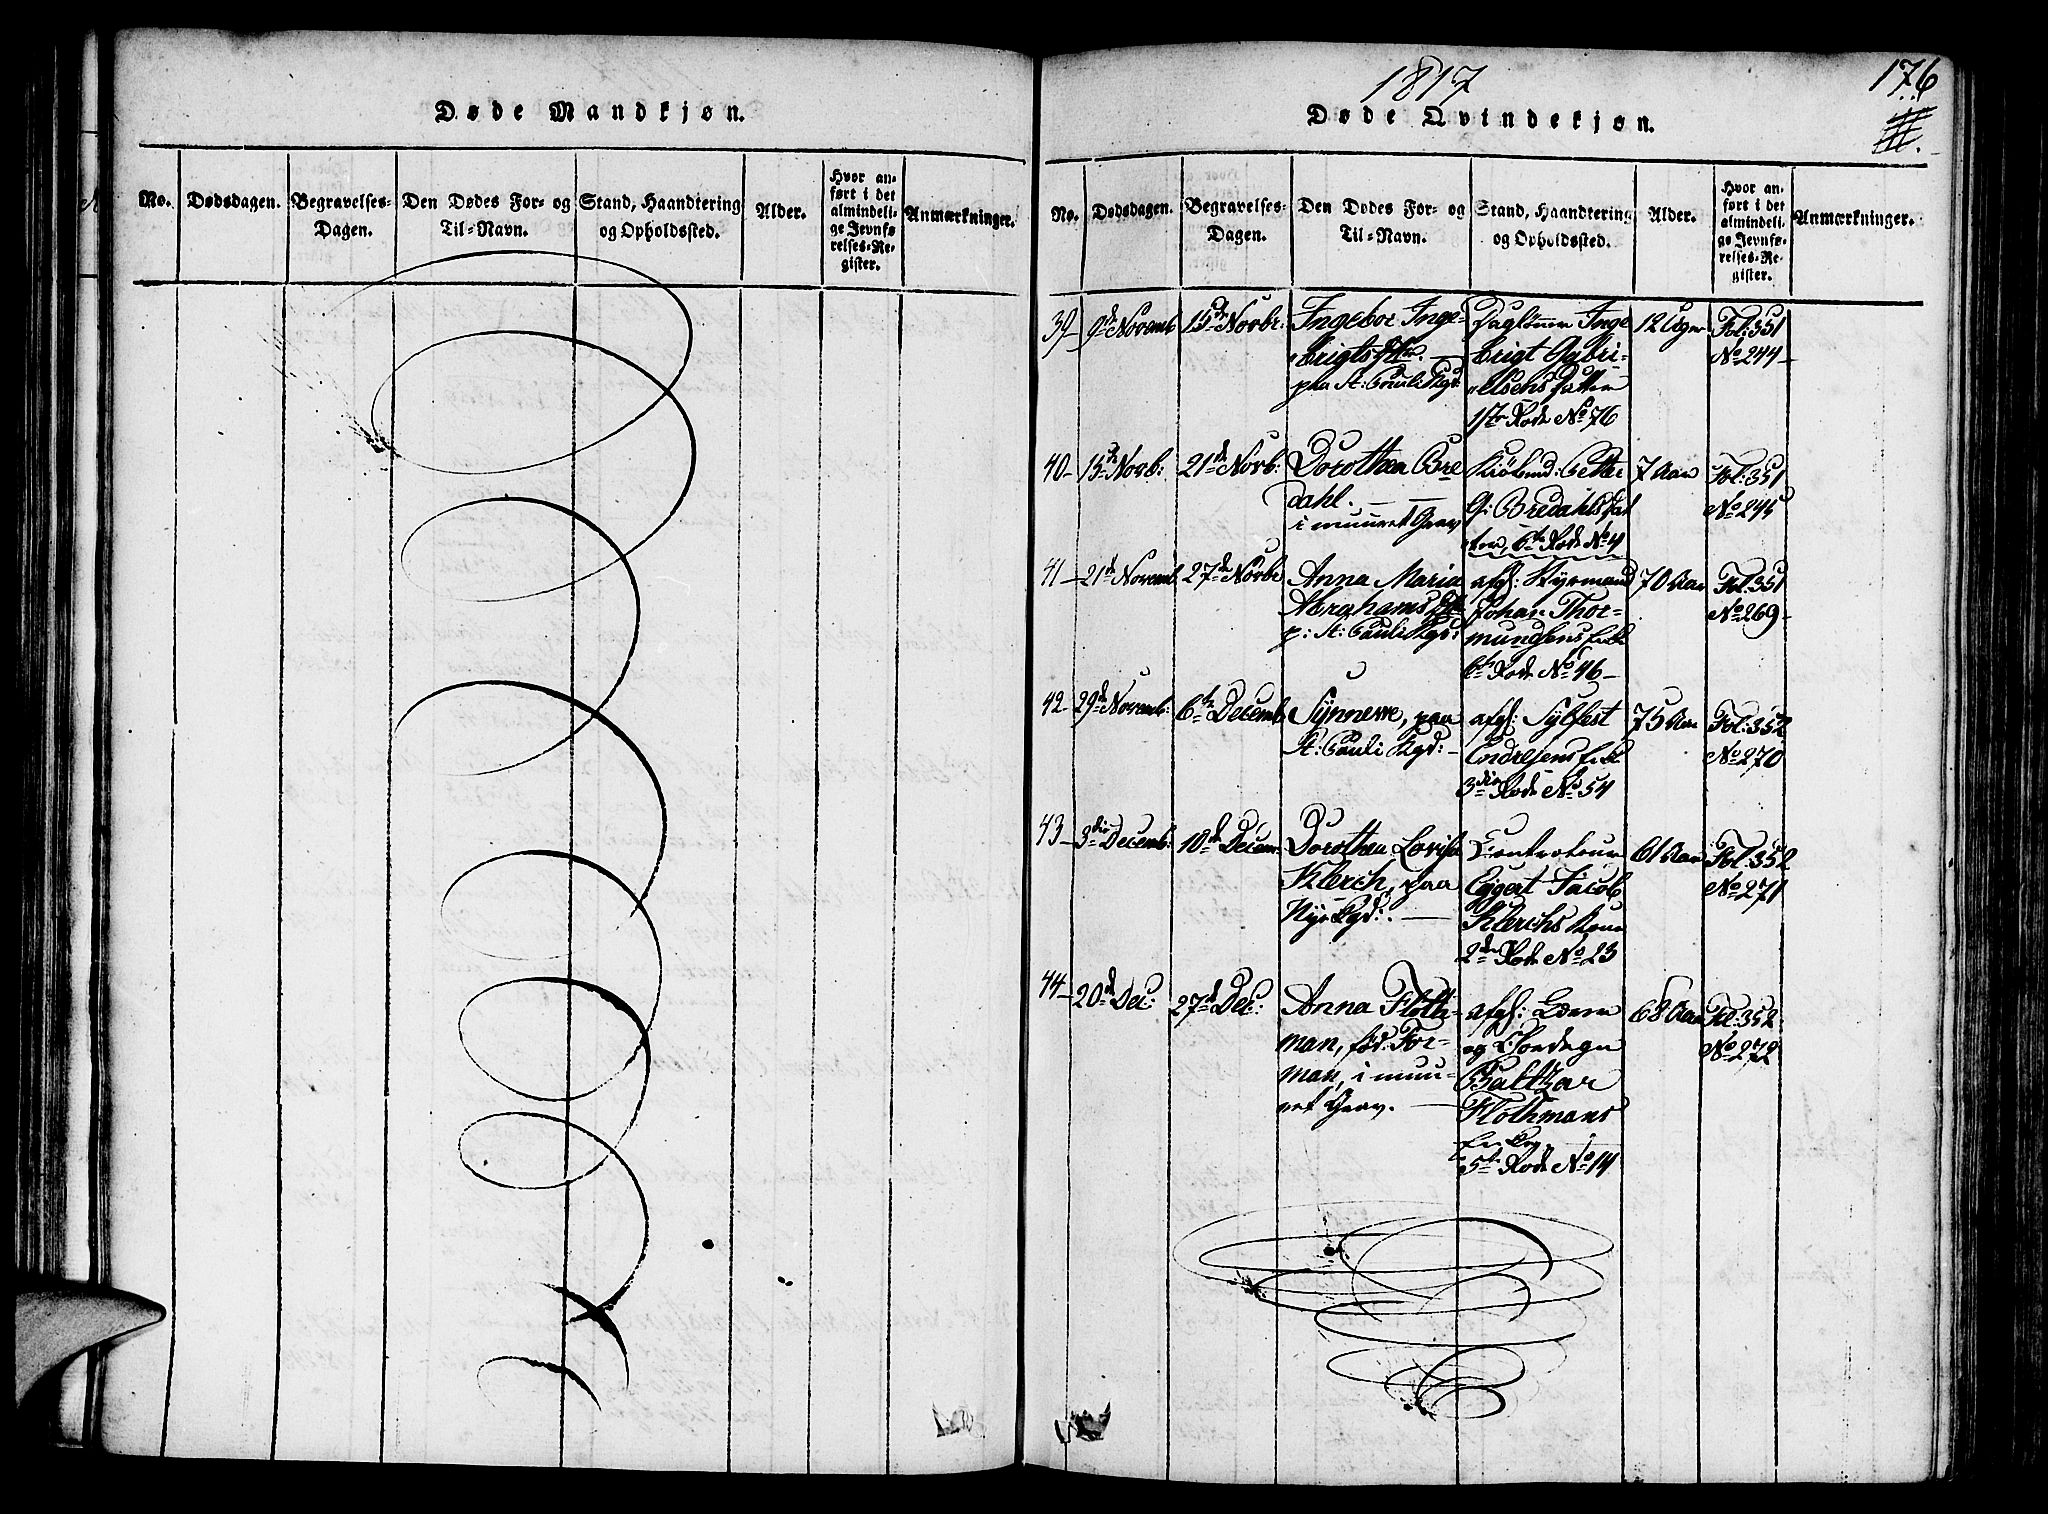 Døde Mandkjøn.
No.
Dødsdagen.
Begravelses-
Dagen.
Den Dødes For- og
Til-Navn.
Stand, Haandtering
og Opholdssted.
Alder.
Hvor an-
ført i det
almindeli-
ge Jevnfø-
relses-Re-
gister.
Anmærkninger.
1817
176
Døde Qvindekjøn.
No.
Dødsdagen.
Begravelses-
Dagen.
Den Dødes For- og
Til-Navn.
Stand, Haandtering
og Opholdssted.
Alder.
Hvor an-
ført i det
almindeli-
ge Jevnfø-
relses-Re-
gister.
Anmærkninger.
39
9de Novemb
15de Novbr.
Ingebor Inge-
brigts Dtr.
paa St: Pauli Kgd:
Daglønner Inge
brigt Gabri-
elsens Datter
1ste Rode No 76
12 Uger
Fol: 351
No 244
40
15de Novb:
21de Novb:
Dorothea Bre
dahl.
i muuret Grav
Kiøbmd: Petter
G: Bredahls Dat
ter, 6te Rode No 4
7 Aar
Fol: 351
No 245
41
21de Novemb.
27de Novbr
Anna Maria
Abrahams Dtr
p: St: Pauli Kgd:
afg: Styrmand
Johan Thor-
mundsens Enke
6te Rode No 46
70 Aar
Fol: 351
No 269
42
29de Novemb:
6te Decemb.
Synneve, paa
St: Pauli Kgd:
afg: Sylfest
Endresens Enke
3die Rode No 54
75 Aar
Fol: 352
No 270
43
3die Decemb:
10de Decem:
Dorothea Lovisa
Klerch, paa
Nye Kgd:
Controleur
Eggert Jacob
Klerchs Kone
2den Rode No 23
61 Aar
Fol: 352
No 271
44
20de Dec:
27de Dec:
Anna Floth-
man, fød: For-
man, i muu-
ret Grav.
afg:
og
Balthzar
Flothmans
Enke
5te Rode No 14
68 Aar
Fol: 352
No 272